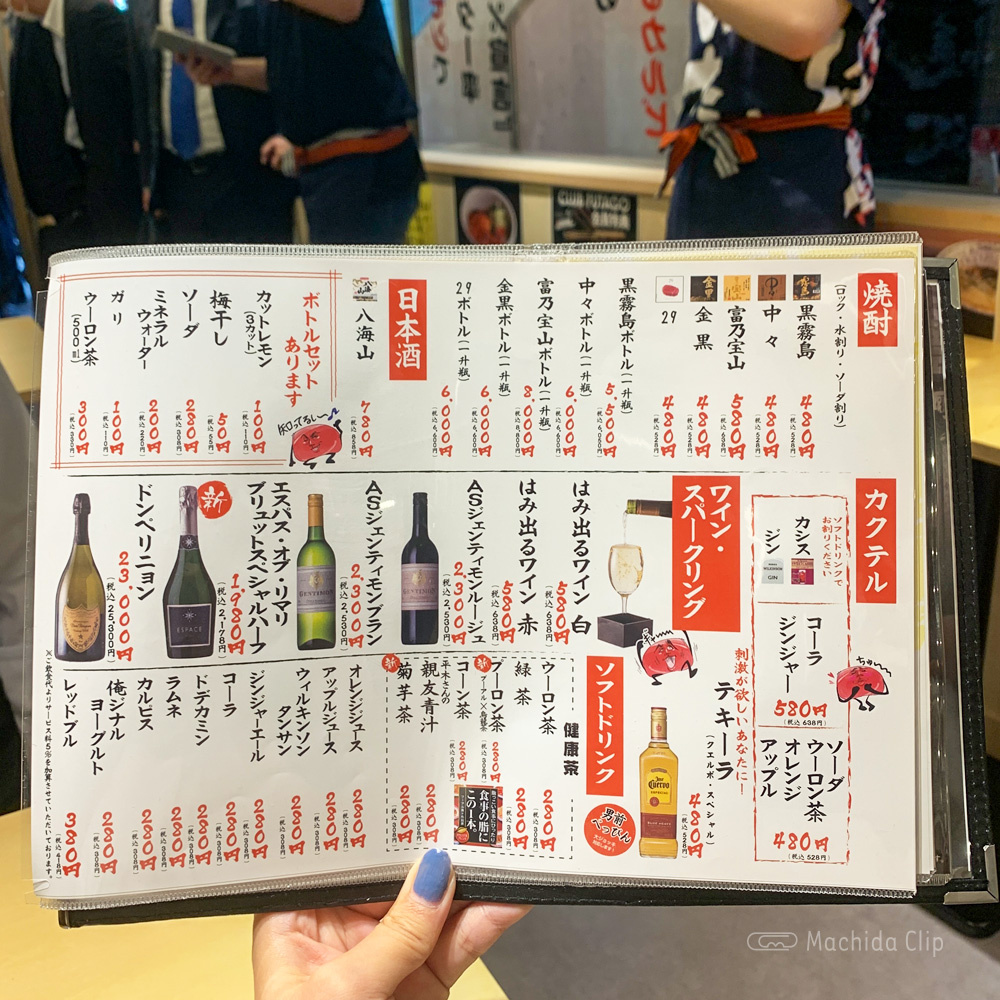 焼酎
(ロック・水割り・ソーダ割り)
黒霧島 480円 (税込 528円)
中々 480円 (税込 528円)
富乃宝山 580円 (税込 638円)
金黒 480円 (税込 528円)
29 480円 (税込 528円)
黒霧島ボトル(一升瓶) 5,500円 (税込 6,050円)
中々ボトル(一升瓶) 6,000円 (税込 6,600円)
富乃宝山ボトル(一升瓶) 8,000円 (税込 8,800円)
金黒ボトル(一升瓶) 6,000円 (税込 6,600円)
29ボトル(一升瓶) 6,000円 (税込 6,600円)
日本酒
八海山 780円 (税込 858円)
ボトルセット
あります
知ってるし〜♪
カットレモン
(3カット) 100円 (税込 110円)
梅干し 50円 (税込 55円)
ソーダ 280円 (税込 308円)
ミネラル
ウォーター 200円 (税込 220円)
ガリ 100円 (税込 110円)
ウーロン茶
(500ml) 300円 (税込 330円)
カクテル
ソフトドリンクで
お割りください
カシス
ジン
GIN
コーラ
ジンジャー
580円
(税込 638円)
ソーダ
ウーロン茶
オレンジ
アップル
480円
(税込 528円)
ちゅ〜
ワイン・
スパークリング
刺激が欲しいあなたに!
テキーラ
(クエルボ・スペシャル)
480円 (税込 528円)
Jose Cuervo
ESPECIAL
はみ出るワイン 白 580円 (税込 638円)
はみ出るワイン 赤 580円 (税込 638円)
ASジェンティモンルージュ 2,300円 (税込 2,530円)
ASジェンティモンブラン 2,300円 (税込 2,530円)
エスパス・オブ・リマリ
ブリュットスペシャルハーフ 1,980円 (税込 2,178円)
新
ESPACE
ドンペリニョン 23,000円 (税込 25,300円)
ソフトドリンク
男前
べっぴん
健康茶
ウーロン茶 280円 (税込 308円)
緑茶 280円 (税込 308円)
新
プーロン茶
プーアル×烏龍茶 280円 (税込 308円)
平木さんの
コーン茶 280円 (税込 308円)
食事の脂に
この1本。
親友青汁 280円 (税込 308円)
新
菊芋茶 280円 (税込 308円)
オレンジジュース 280円 (税込 308円)
アップルジュース 280円 (税込 308円)
ウィルキンソン
タンサン 280円 (税込 308円)
ジンジャーエール 280円 (税込 308円)
コーラ 280円 (税込 308円)
ドデカミン 280円 (税込 308円)
ラムネ 280円 (税込 308円)
カルピス 280円 (税込 308円)
俺ジナル
ヨーグルト 280円 (税込 308円)
レッドブル 380円 (税込 418円)
※ご飲食代よりサービス料5%を加算させていただいております。
CLUB FUTAGO
Machida Clip